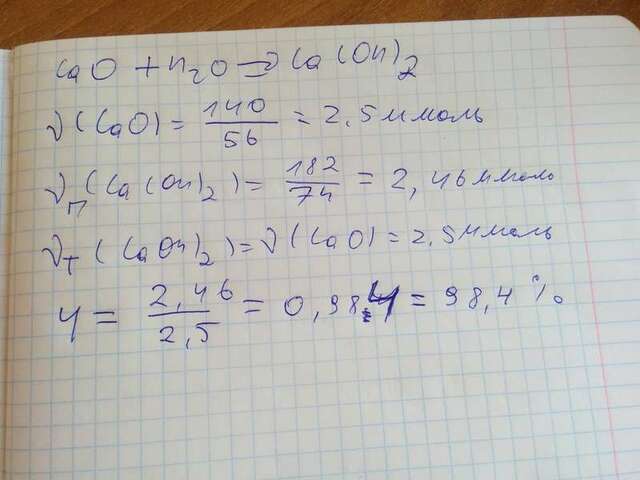 CaO + H2O = Ca(OH)2
ν(CaO) = 140/56 = 2,5 ммоль
νп(Ca(OH)2) = 182/74 = 2,46 ммоль
νт(Ca(OH)2) = ν(CaO) = 2,5 ммоль
η = 2,46/2,5 = 0,984 = 98,4%